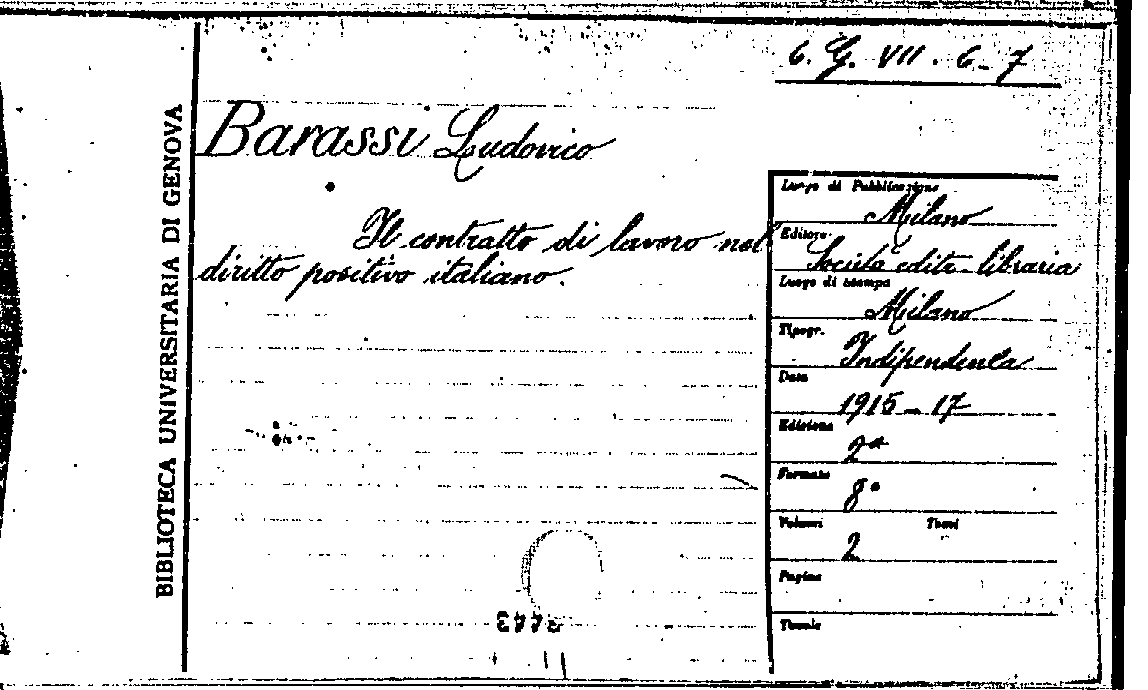 6. G. VII. 6-7
BIBLIOTECA UNIVERSITARIA DI GENOVA
Barassi Ludovico
Il contratto di lavoro nel
diritto positivo italiano.
Luogo di Pubblicazione
Milano
Editore
Società edit. libraria
Luogo di stampa
Milano
Tipogr.
Indipendenza
Data
1915-17
Edizione
2ª
Formato
8°
Volumi Tomi
2
Pagine
Tavole